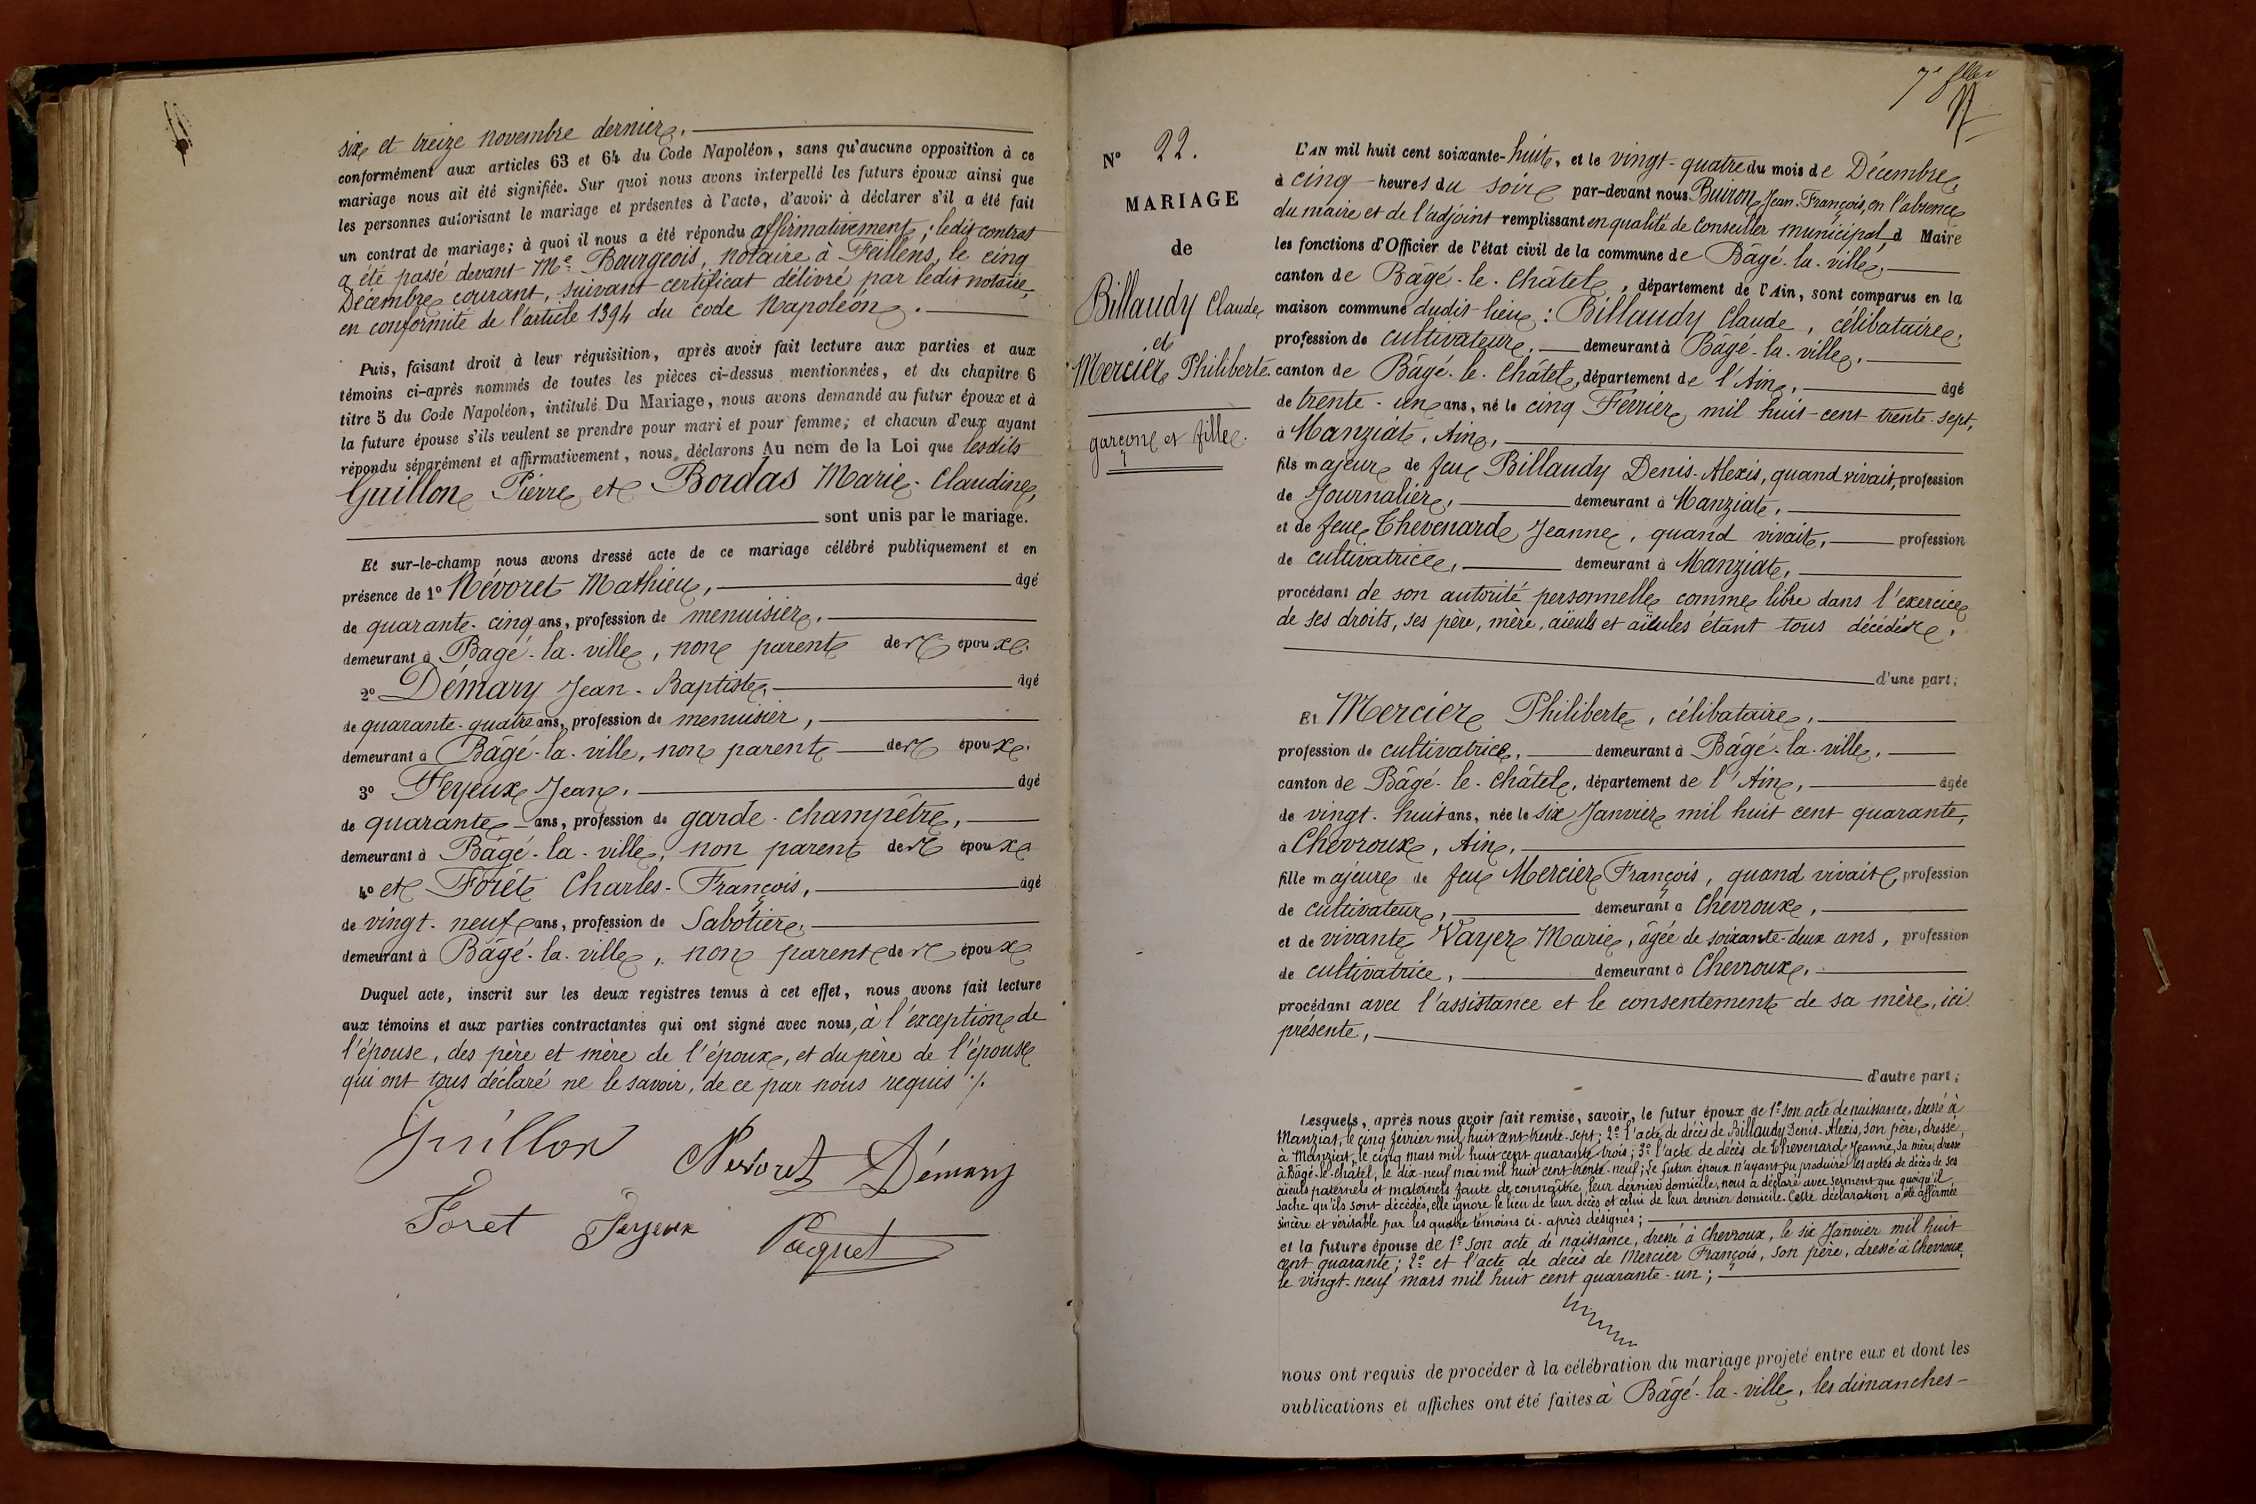 six et treize novembre dernier.
conformément aux articles 63 et 64 du Code Napoléon, sans qu'aucune opposition à ce
mariage nous ait été signifiée. Sur quoi nous avons interpellé les futurs époux ainsi que
les personnes autorisant le mariage et présentes à l'acte, d'avoir à déclarer s'il a été fait
un contrat de mariage; à quoi il nous a été répondu affirmativement; ledit contrat
a été passé devant Me Bourgeois, notaire à Feillens, le cinq
Décembre courant, suivant certificat délivré par ledit notaire,
en conformité de l'article 1394 du code Napoléon.
Puis, faisant droit à leur réquisition, après avoir fait lecture aux parties et aux
témoins ci-après nommés de toutes les pièces ci-dessus mentionnées, et du chapitre 6
titre 5 du Code Napoléon, intitulé Du Mariage, nous avons demandé au futur époux et à
la future épouse s'ils veulent se prendre pour mari et pour femme; et chacun d'eux ayant
répondu séparément et affirmativement, nous déclarons Au nom de la Loi que lesdits
Guillon Pierre et Bordas Marie-Claudine,
sont unis par le mariage.
Et sur-le-champ nous avons dressé acte de ce mariage célébré publiquement et en
présence de 1º Névoret Mathieu, âgé
de quarante-cinq ans, profession de menuisier,
demeurant à Bâgé-la-ville, non parent des époux.
2º Démary Jean-Baptiste, âgé
de quarante-quatre ans, profession de menuisier,
demeurant à Bâgé-la-ville, non parent des époux.
3º Feyeux Jean, âgé
de quarante ans, profession de garde-champêtre,
demeurant à Bâgé-la-ville, non parent des époux
4º et Forêt Charles-François, âgé
de vingt-neuf ans, profession de Sabotier,
demeurant à Bâgé-la-ville, non parent des époux
Duquel acte, inscrit sur les deux registres tenus à cet effet, nous avons fait lecture
aux témoins et aux parties contractantes qui ont signé avec nous, à l'exception de
l'épouse, des père et mère de l'époux, et du père de l'épouse
qui ont tous déclaré ne le savoir, de ce par nous requis ./.
Guillon
Nevoret Démary
Foret Feyeux Pacquet
7e
Nº 22.
MARIAGE
de
Billaudy Claude
et
Mercier Philiberte.
garçon et fille.
L'AN mil huit cent soixante-huit, et le vingt-quatre du mois de Décembre,
à cinq heures du soir par-devant nous Buiron Jean-François, en l'absence
du maire et de l'adjoint remplissant en qualité de Conseiller municipal d Maire
les fonctions d'Officier de l'état civil de la commune de Bâgé-la-ville,
canton de Bâgé-le-Châtel, département de l'Ain, sont comparus en la
maison commune dudit lieu: Billaudy Claude, célibataire,
profession de cultivateur, demeurant à Bâgé-la-ville,
canton de Bâgé-le-Châtel, département de l'Ain, âgé
de trente-un ans, né le cinq Février mil huit-cent trente-sept,
à Manziat, Ain,
fils majeur de feu Billaudy Denis-Alexis, quand vivait, profession
de Journalier, demeurant à Manziat,
et de feue Thevenard Jeanne, quand vivait, profession
de cultivatrice, demeurant à Manziat,
procédant de son autorité personnelle comme libre dans l'exercice
de ses droits, ses père, mère, aïeuls et aïeules étant tous décédés.
d'une part;
Et Mercier Philiberte, célibataire,
profession de cultivatrice, demeurant à Bâgé-la-ville,
canton de Bâgé-le-Châtel, département de l'Ain, âgée
de vingt-huit ans, née le six Janvier mil huit cent quarante,
à Chevroux, Ain,
fille majeure de feu Mercier François, quand vivait, profession
de cultivateur, demeurant à Chevroux,
et de vivante Vayer Marie, âgée de soixante-deux ans, profession
de cultivatrice, demeurant à Chevroux,
procédant avec l'assistance et le consentement de sa mère, ici
présente,
d'autre part;
Lesquels, après nous avoir fait remise, savoir, le futur époux de 1º Son acte de naissance, dressé à
Manziat, le cinq février mil huit cent trente-sept; 2º l'acte de décès de Billaudy Denis-Alexis, son père, dressé
à Manziat, le cinq mars mil huit cent quarante-trois; 3º l'acte de décès de Thevenard Jeanne, sa mère, dressé
à Bâgé-le-Châtel, le dix-neuf mai mil huit cent trente-neuf; Le futur époux n'ayant pu produire les actes de décès de ses
aïeuls paternels et maternels faute de connaître leur dernier domicile, nous a déclaré avec serment que quoiqu'il
sache qu'ils sont décédés, elle ignore le lieu de leur décès et celui de leur dernier domicile. Cette déclaration a été affirmée
sincère et véritable par les quatre témoins ci-après désignés;
et la future épouse de 1º son acte de naissance, dressé à Chevroux, le six Janvier mil huit
cent quarante; 2º et l'acte de décès de Mercier François, son père, dressé à Chevroux,
le vingt-neuf mars mil huit cent quarante-un;
nous ont requis de procéder à la célébration du mariage projeté entre eux et dont les
publications et affiches ont été faites à Bâgé-la-ville, les dimanches